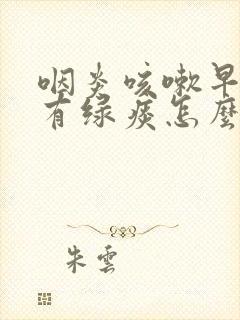 咽炎咳嗽早
有绿痰怎麽
朱雲